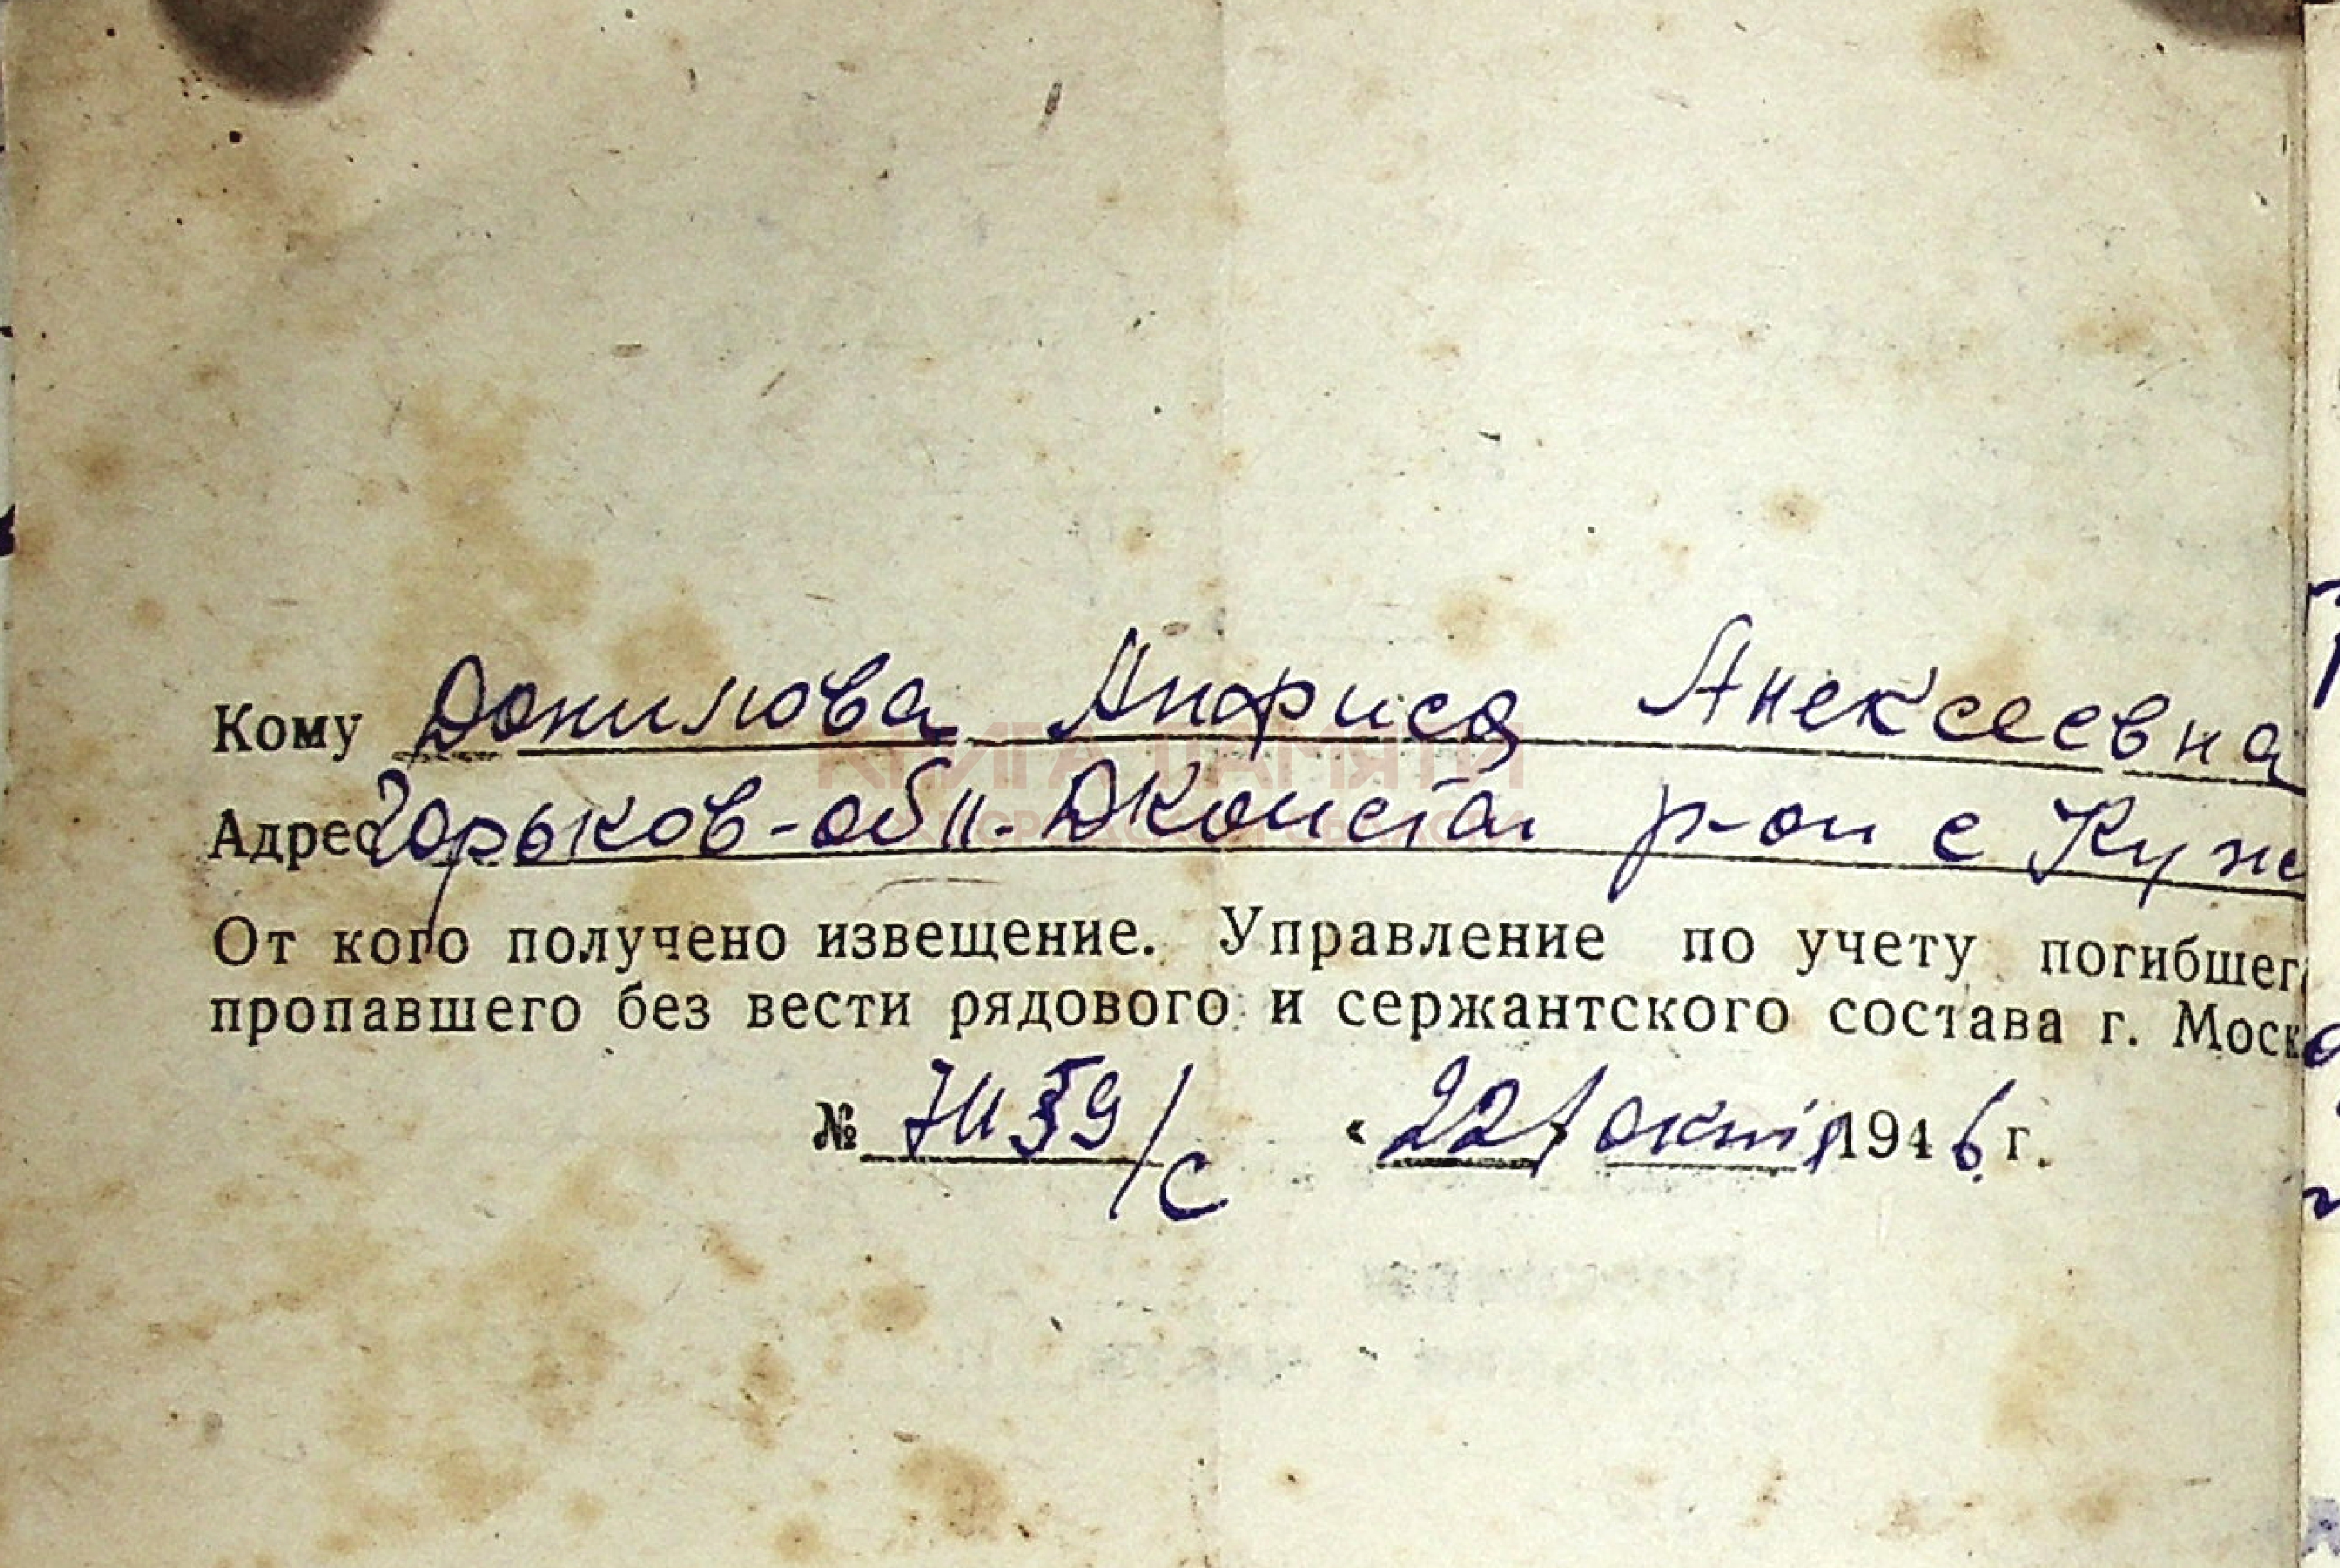 Кому Данилова Анфиса Алексеевна
Адрес Горьков-обл. Дконстан р-он с
От кого получено извещение. Управление по учету погибшег
пропавшего без вести рядового и сержантского состава г. Моск
№ /с «22» октяб 1946 г.
КНИГА ПАМЯТИ